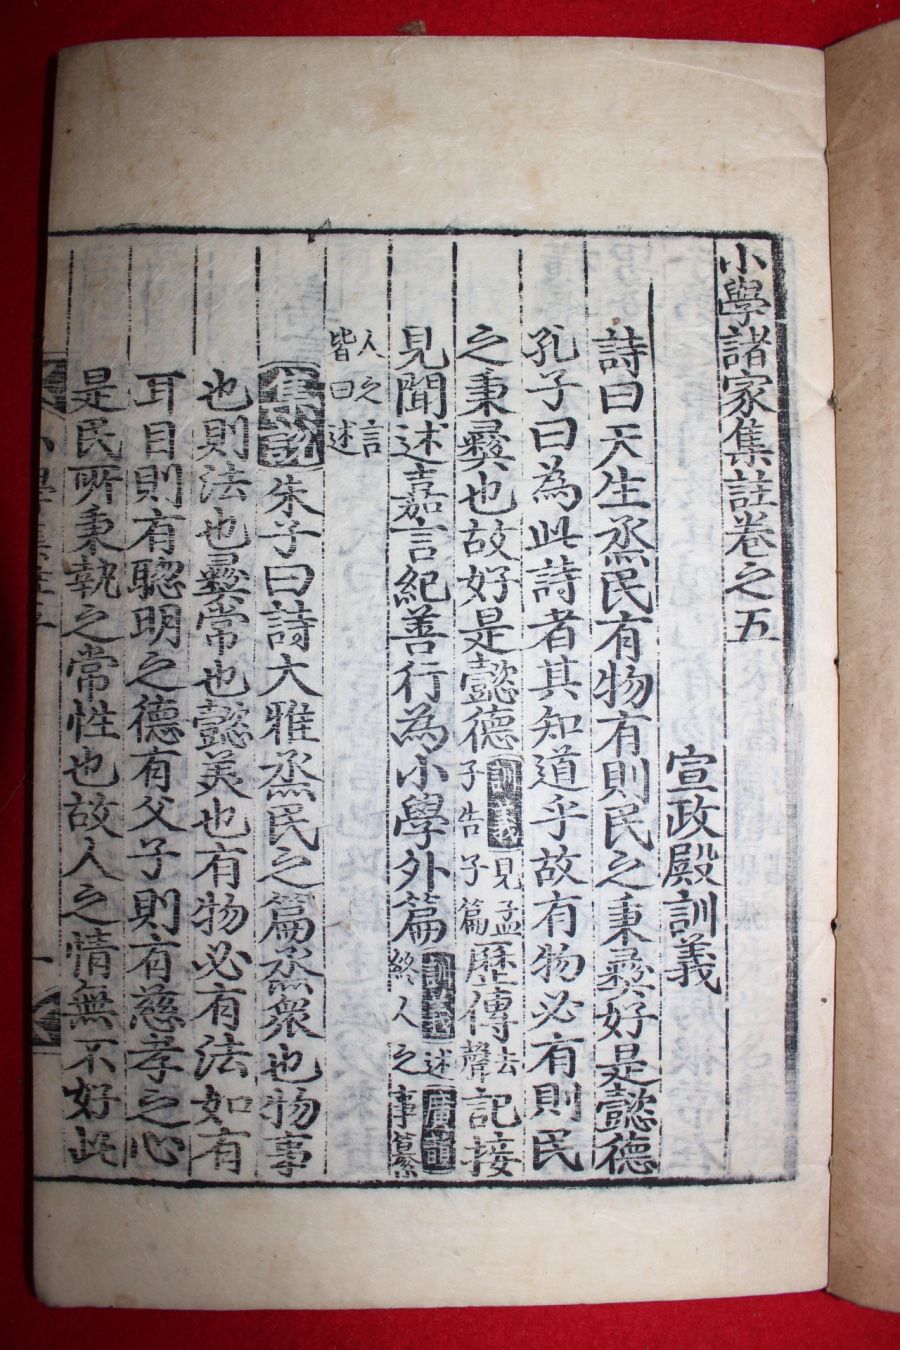 小學諸家集註卷之五
宣政殿訓義
詩曰天生烝民有物有則民之秉彝好是懿德
孔子曰為此詩者其知道乎故有物必有則民
之秉彝也故好是懿德訓義見孟子告子篇歷傳去聲記接
見聞述嘉言紀善行為小學外篇訓義述廣韻終人之事纂
人之言皆曰述
集說朱子曰詩大雅烝民之篇烝衆也物事
也則法也彝常也懿美也有物必有法如有
耳目則有聦明之德有父子則有慈孝之心
是民所秉執之常性也故人之情無不好此